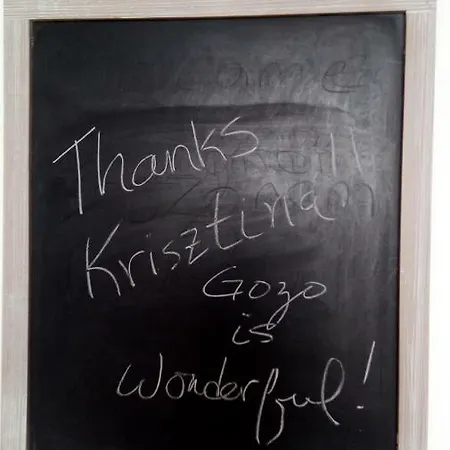 Thanks
Krisztina
Gozo
is
Wonderful!